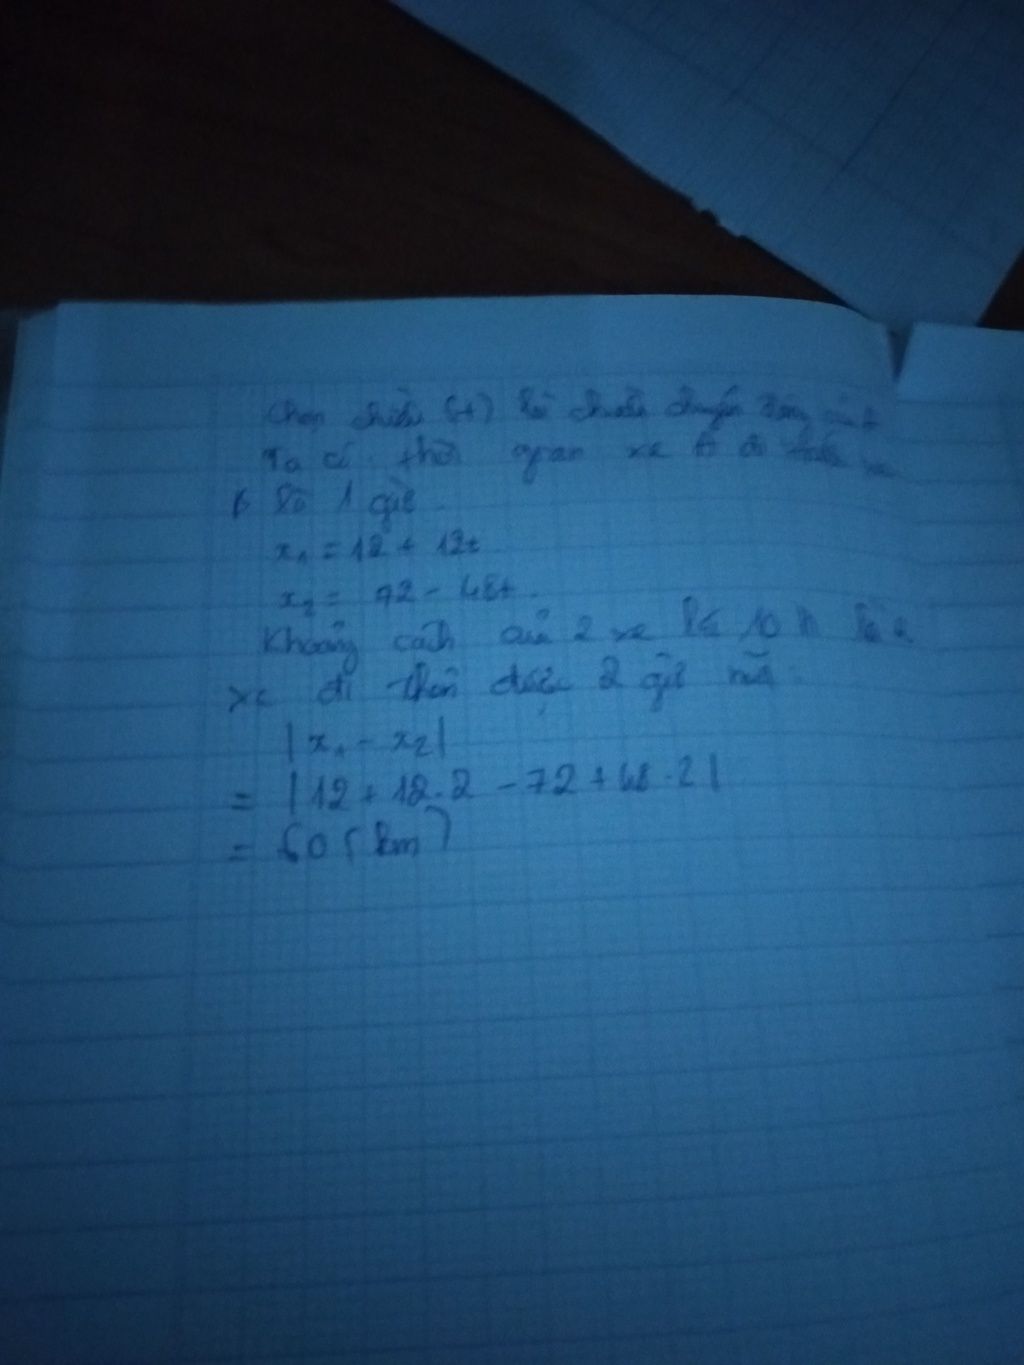 Chọn chiều (+) là chiều chuyển động của A
Ta có thời gian xe A đi trước xe
B là 1 giờ.
x₁ = 12 + 12t
x₂ = 72 - 48t.
Khoảng cách của 2 xe lúc 10 h là 2
xe đi thêm được 2 giờ nữa.
|x₁ - x₂|
= |12 + 12.2 - 72 + 48.2|
= 60 (km)